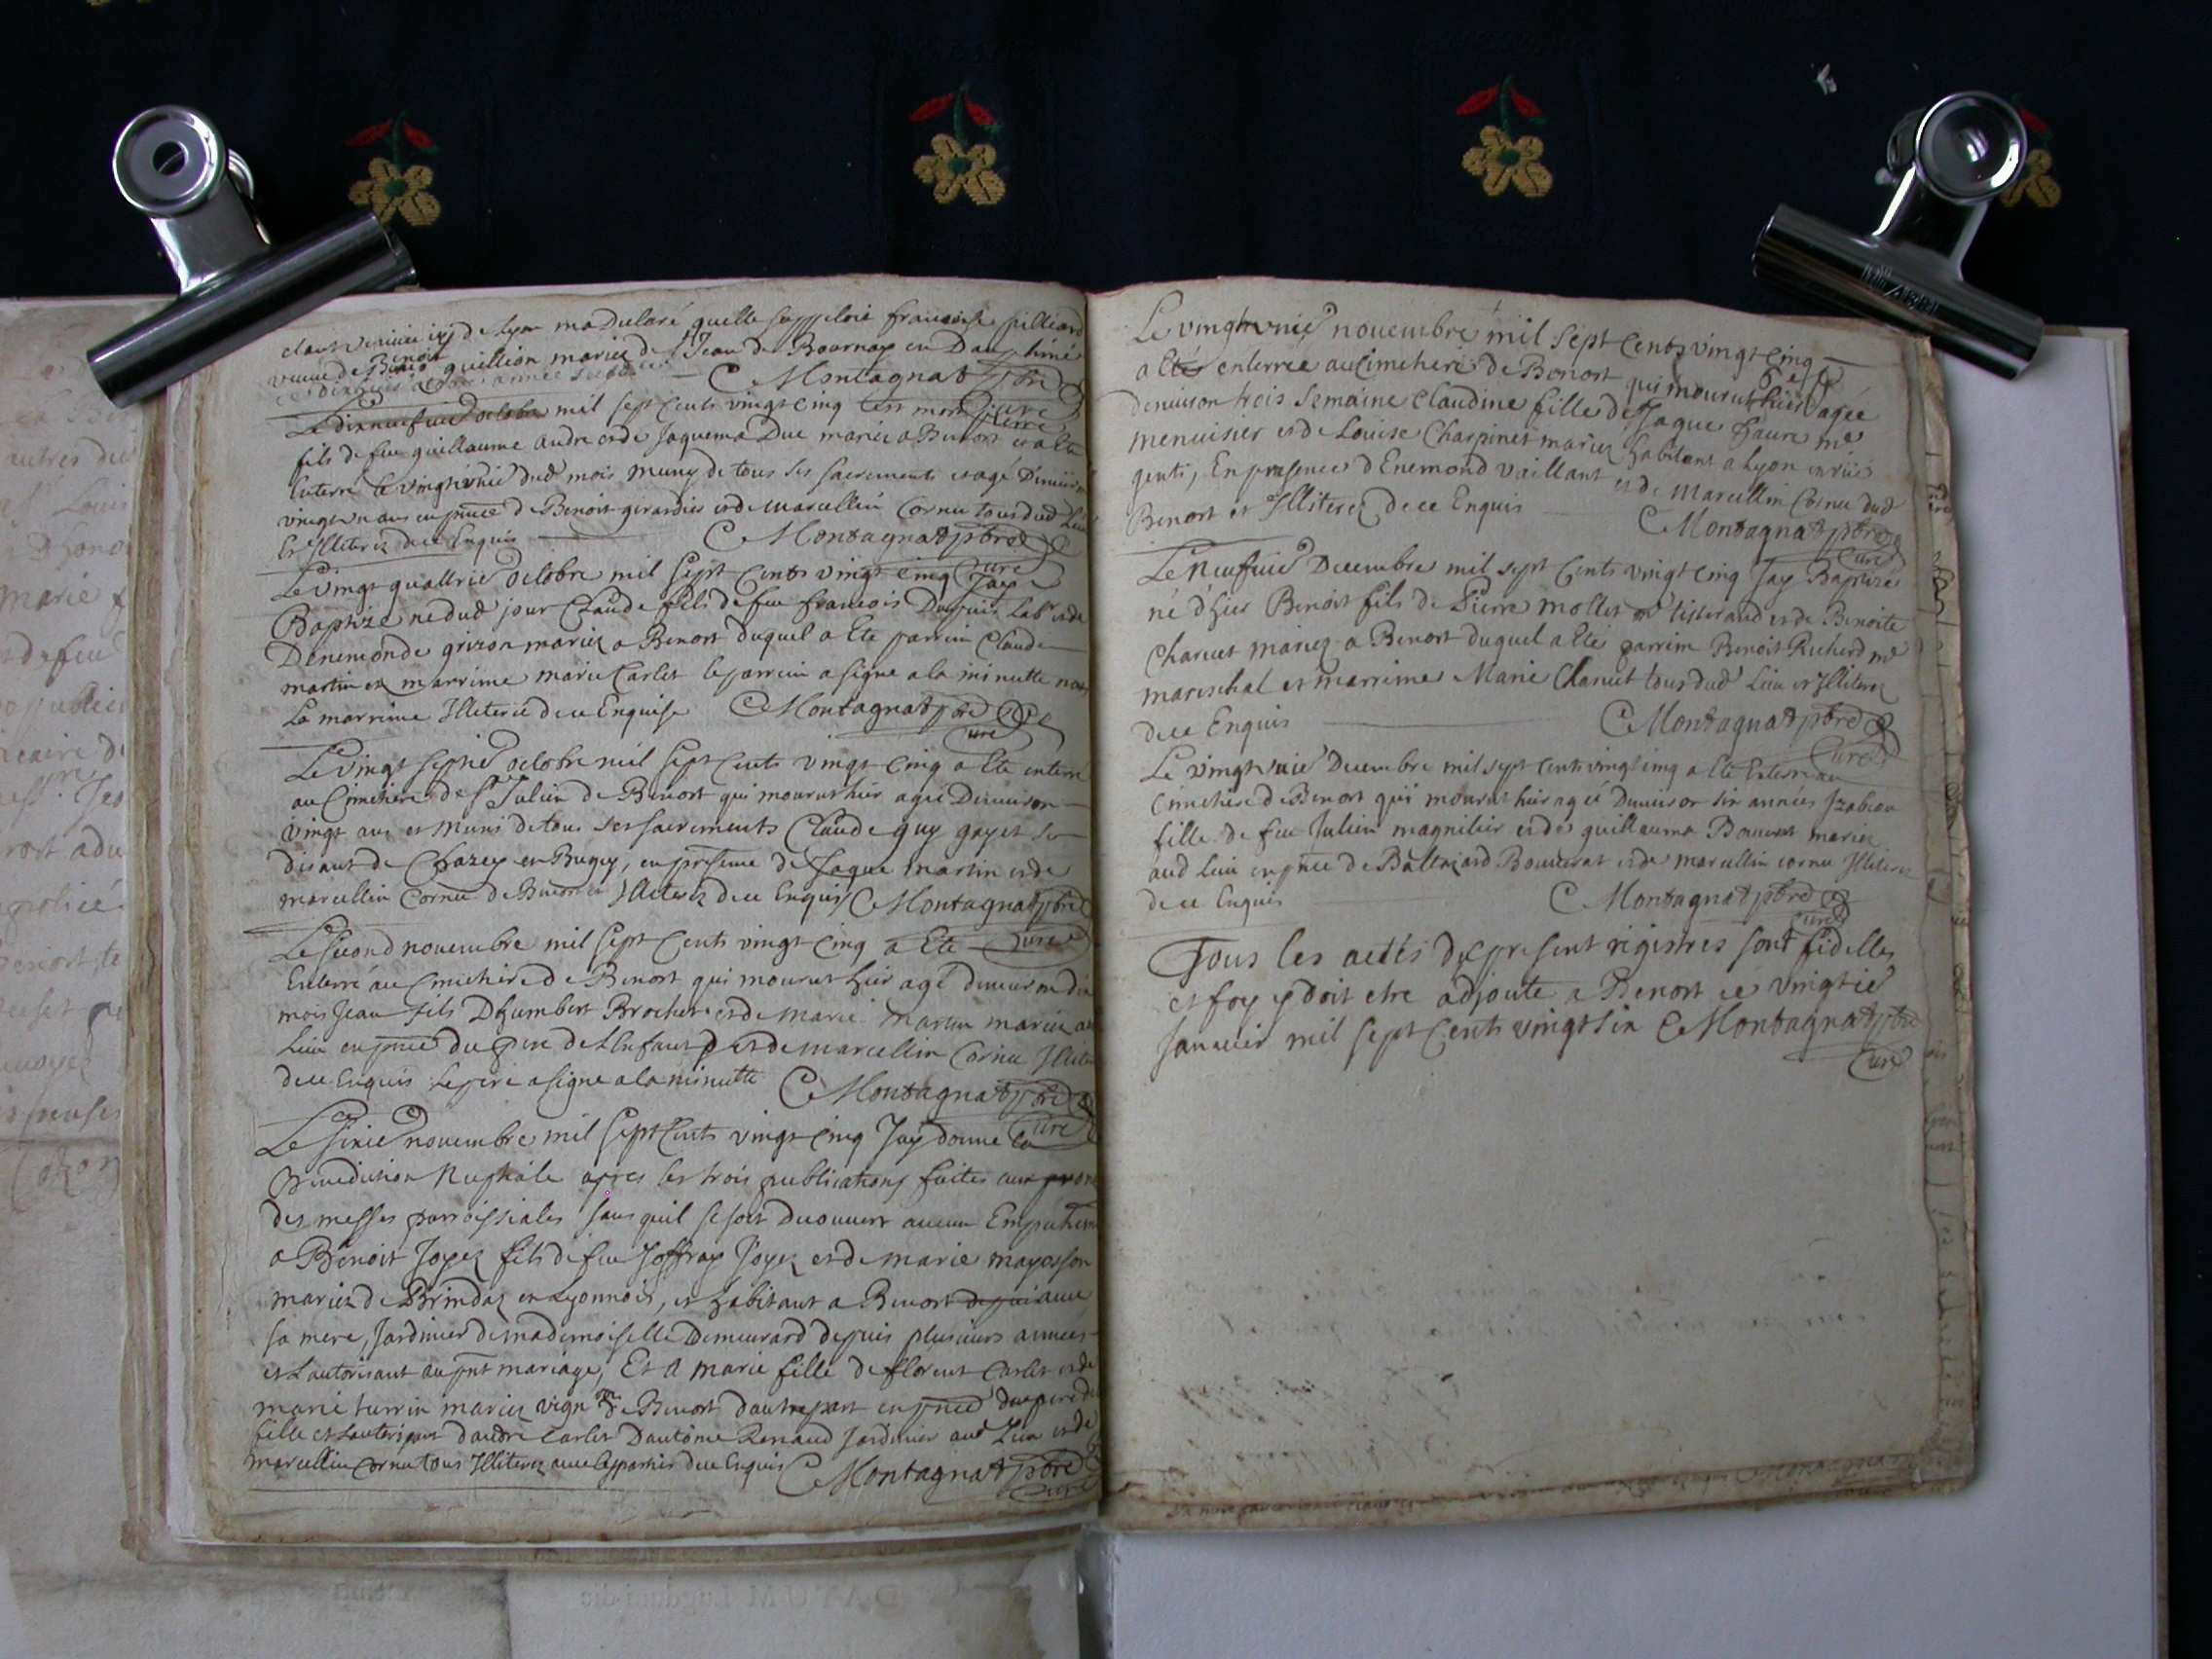 venue de Benoit quillion mariez de St Jean de Bournay en Dauphiné
C Montagnat ptre
curé
Le dixneufuie octobre mil sept cents vingt cinq est mort pierre
fils de feu guillaume andre et de Jaquema Duc mariez a Benost et a ete
Enterré le vingtunie dud mois muny de tous ses sacrements et agé Denuiron
vingt un ans en pnce de Benoit girardier et de marcellin Cornu tous dud Lieu
Et Illiterez de ce Enquis C Montagnat ptre
curé
Le vingt quattrie octobre mil sept Cents vingt cinq Jay
Baptizé né dud jour Claude fils de feu francois Dupuis Labr et de
Denemonde grizon mariez a Benost duquel a Ete parrin Claude
martin et marrine marie Carlet le parrin a signe a la minutte non
La marrine Illiterée de ce Enquise C Montagnat ptre
curé
Le vingt septie octobre mil sept Cents vingt cinq a Ete enterré
au Cimethere de St Julien de Benost qui mourut hier agé Denuiron
vingt ans et muni de tous ses sacrements Claude guy gayet se
disant de Chazey en Bugey, en presence de Jaque martin et de
marcellin Cornu de Benost et Illiterez de ce Enquis C Montagnat ptre
curé
Le second nouembre mil sept Cents vingt cinq a Ete
Enterré au Cimethere de Benost qui mourut hier agé denuiron dix
mois Jean fils Dhumbert Brochet et de marie martin mariez au
Lieu en pnce du pere de Lenfant et de marcellin Cornu Illiterez
de ce Enquis Le pere a signe a la minutte C Montagnat ptre
curé
Le sixie nouembre mil sept Cents vingt cinq Jay donne la
Benediction Nuptiale apres les trois publications faites aux prones
des messes parroissiales sans quil se soit Decouuert aucun Empechem
a Benoit Joyez fils de feu Joffray Joyez et de marie mayosson
mariez de Brindaz en Lyonnois, et habitant a Benost depuis auec
sa mere, Jardinier de mademoiselle Demeurard depuis plusieurs annees
et Lautorisant au pnt mariage, Et a marie fille de florent Carlet et de
marie turrin mariez vignr de Benost dautre part en pnce du pere de
fille et Lautorisant dandre Carlet Dantoine Renaud Jardinier aud Lieu et de
marcellin Cornu tous Illiterez auec les parties de ce Enquis C Montagnat ptre
curé
Le vingtunie nouembre mil sept Cents vingt cinq
a Ete enterrée au Cimethere de Benost qui mourut hier agée
denuiron trois semaine Claudine fille de Jaque faure me
menuisier et de Louise Charpinet mariez habitant a Lyon en rue
genti, En presence dEnemond vaillant et de Marcellin Cornu dud
Benost et Illiterez de ce Enquis C Montagnat ptre
curé
Le Neufuie Decembre mil sept Cents vingt cinq Jay Baptizé
né d'hier Benoit fils de Pierre mollet me tisserand et de Benoite
Charuet mariez a Benost duquel a Ete parrin Benoit Richerd me
mareschal et marrine Marie Chanut tous dud Lieu et Illiterez
de ce Enquis C Montagnat ptre
curé
Decembre mil sept Cents vingt cinq a Ete Enterré au
Cimethere de Benost qui mourut hier agée Denuiron six années Izabeau
fille de feu Julien magnilier et de guillauma Bouuerat mariez
aud Lieu en pnce de Baltazard Bouuerat et de marcellin cornu Illiterez
de ce Enquis C Montagnat ptre
curé
Tous les actes du present registres sont fidelles
et foy y doit etre adjouté a Benost ce vingtie
Januier mil sept Cents vingt six C Montagnat ptre
curé